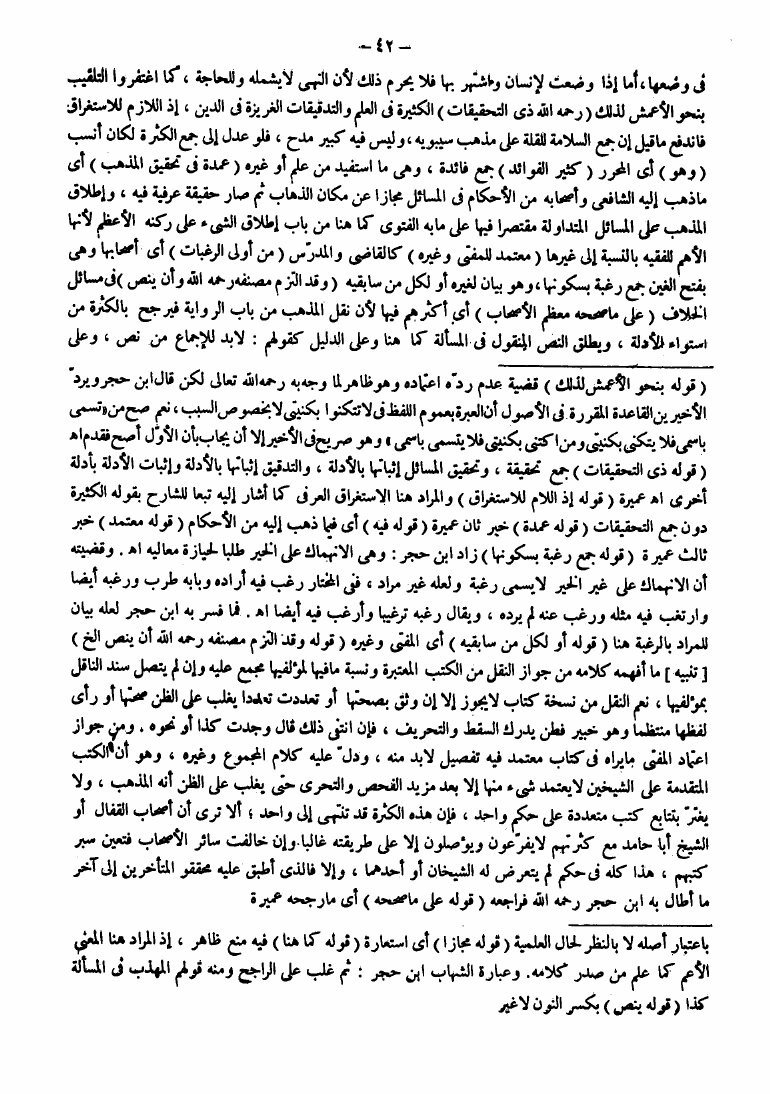 — ٤٢ —
فى وضعها، أما إذا وضعت لإنسان واشتهر بها فلا يحرم ذلك لأن النهى لايشمله وللحاجة ، كما اغتفروا التلقيب
بنحو الأعمش لذلك ( رحمه الله ذى التحقيقات ) الكثيرة فى العلم والتدقيقات الغزيرة فى الدين ، إذ اللازم للاستغراق
فاندفع ماقيل إن جمع السلامة للقلة على مذهب سيبويه، وليس فيه كبير مدح ، فلو عدل إلى جمع الكثرة لكان أنسب
( وهو ) أى المحرر ( كثير الفوائد ) جمع فائدة ، وهى ما استفيد من علم أو غيره ( عمدة فى تحقيق المذهب ) أى
ماذهب إليه الشافعى وأصحابه من الأحكام فى المسائل مجازا عن مكان الذهاب ثم صار حقيقة عرفية فيه ، وإطلاق
المذهب على المسائل المتداولة مقتصرا فيها على مابه الفتوى كما هنا من باب إطلاق الشىء على ركنه الأعظم لأنها
الأهم للفقيه بالنسبة إلى غيرها ( معتمد للمفتى وغيره ) كالقاضى والمدرّس ( من أولى الرغبات ) أى أصحابها وهى
بفتح الغين جمع رغبة بسكونها، وهو بيان لغيره أو لكل من سابقيه ( وقد التزم مصنفه رحمه الله وأن ينص ) فى مسائل
الخلاف ( على ماصححه معظم الأصحاب ) أى أكثرهم فيها لأن نقل المذهب من باب الرواية فيرجح بالكثرة من
استواء الأدلة ، ويطلق النص المنقول فى المسألة كما هنا وعلى الدليل كقولهم : لابد للإجماع من نص ، وعلى
( قوله بنحو الأعمش لذلك ) قضية عدم ردّه اعتماده وهو ظاهر لما وجه به رحمه الله تعالى لكن قال ابن حجر ويردّ
الأخيرين القاعدة المقررة فى الأصول أن العبرة بعموم اللفظ فى لاتكنوا بكنيتى لابخصوص السبب، نعم صح من «تسمى
باسمى فلا يتكنى بكنيتى ومن اكتنى بكنيتى فلا يتسمى باسمى» وهو صريح فى الأخير إلا أن يجاب بأن الأوّل أصح فقدم اه
( قوله ذى التحقيقات ) جمع تحقيقة ، وتحقيق المسائل إثباتها بالأدلة ، والتدقيق إثباتها بالأدلة وإثبات الأدلة بأدلة
أخرى اه عميرة ( قوله إذ اللام للاستغراق ) والمراد هنا الاستغراق العرفى كما أشار إليه تبعا للشارح بقوله الكثيرة
دون جمع التحقيقات ( قوله عمدة ) خبر ثان عميرة ( قوله فيه ) أى فيما ذهب إليه من الأحكام ( قوله معتمد ) خبر
ثالث عميرة ( قوله جمع رغبة بسكونها ) زاد ابن حجر : وهى الانهماك على الخير طلبا لحيازة معاليه اه . وقضيته
أن الانهماك على غير الخير لايسمى رغبة ولعله غير مراد ، ففى المختار رغب فيه أراده وبابه طرب ورغبه أيضا
وارتغب فيه مثله ورغب عنه لم يرده ، ويقال رغبه ترغيبا وأرغب فيه أيضا اه . فما فسر به ابن حجر لعله بيان
للمراد بالرغبة هنا ( قوله أو لكل من سابقيه ) أى المفتى وغيره ( قوله وقد التزم مصنفه رحمه الله أن ينص الخ )
[ تنبيه ] ما أفهمه كلامه من جواز النقل من الكتب المعتبرة ونسبة مافيها لمؤلفيها مجمع عليه وإن لم يتصل سند الناقل
بمؤلفيها ، نعم النقل من نسخة كتاب لايجوز إلا إن وثق بصحتها أو تعددت تعددا يغلب على الظن صحتها أو رأى
لفظها منتظما وهو خبير فطن يدرك السقط والتحريف ، فإن انتفى ذلك قال وجدت كذا أو نحوه . ومن جواز
اعتماد المفتى مايراه فى كتاب معتمد فيه تفصيل لابد منه ، ودلّ عليه كلام المجموع وغيره ، وهو أن الكتب
المتقدمة على الشيخين لايعتمد شىء منها إلا بعد مزيد الفحص والتحرى حتى يغلب على الظن أنه المذهب ، ولا
يغترّ بتتابع كتب متعددة على حكم واحد ، فإن هذه الكثرة قد تنتهى إلى واحد ؛ ألا ترى أن أصحاب القفال أو
الشيخ أبا حامد مع كثرتهم لايفرّعون ويؤصلون إلا على طريقته غالبا وإن خالفت سائر الأصحاب فتعين سبر
كتبهم ، هذا كله فى حكم لم يتعرض له الشيخان أو أحدهما ، وإلا فالذى أطبق عليه محققو المتأخرين إلى آخر
ما أطال به ابن حجر رحمه الله فراجعه ( قوله على ماصححه ) أى مارجحه عميرة
باعتبار أصله لا بالنظر لحال العلمية ( قوله مجازا ) أى استعارة ( قوله كما هنا ) فيه منع ظاهر ، إذ المراد هنا المعنى
الأعم كما علم من صدر كلامه . وعبارة الشهاب ابن حجر : ثم غلب على الراجح ومنه قولهم المهذب فى المسألة
كذا ( قوله ينص ) بكسر النون لاغير